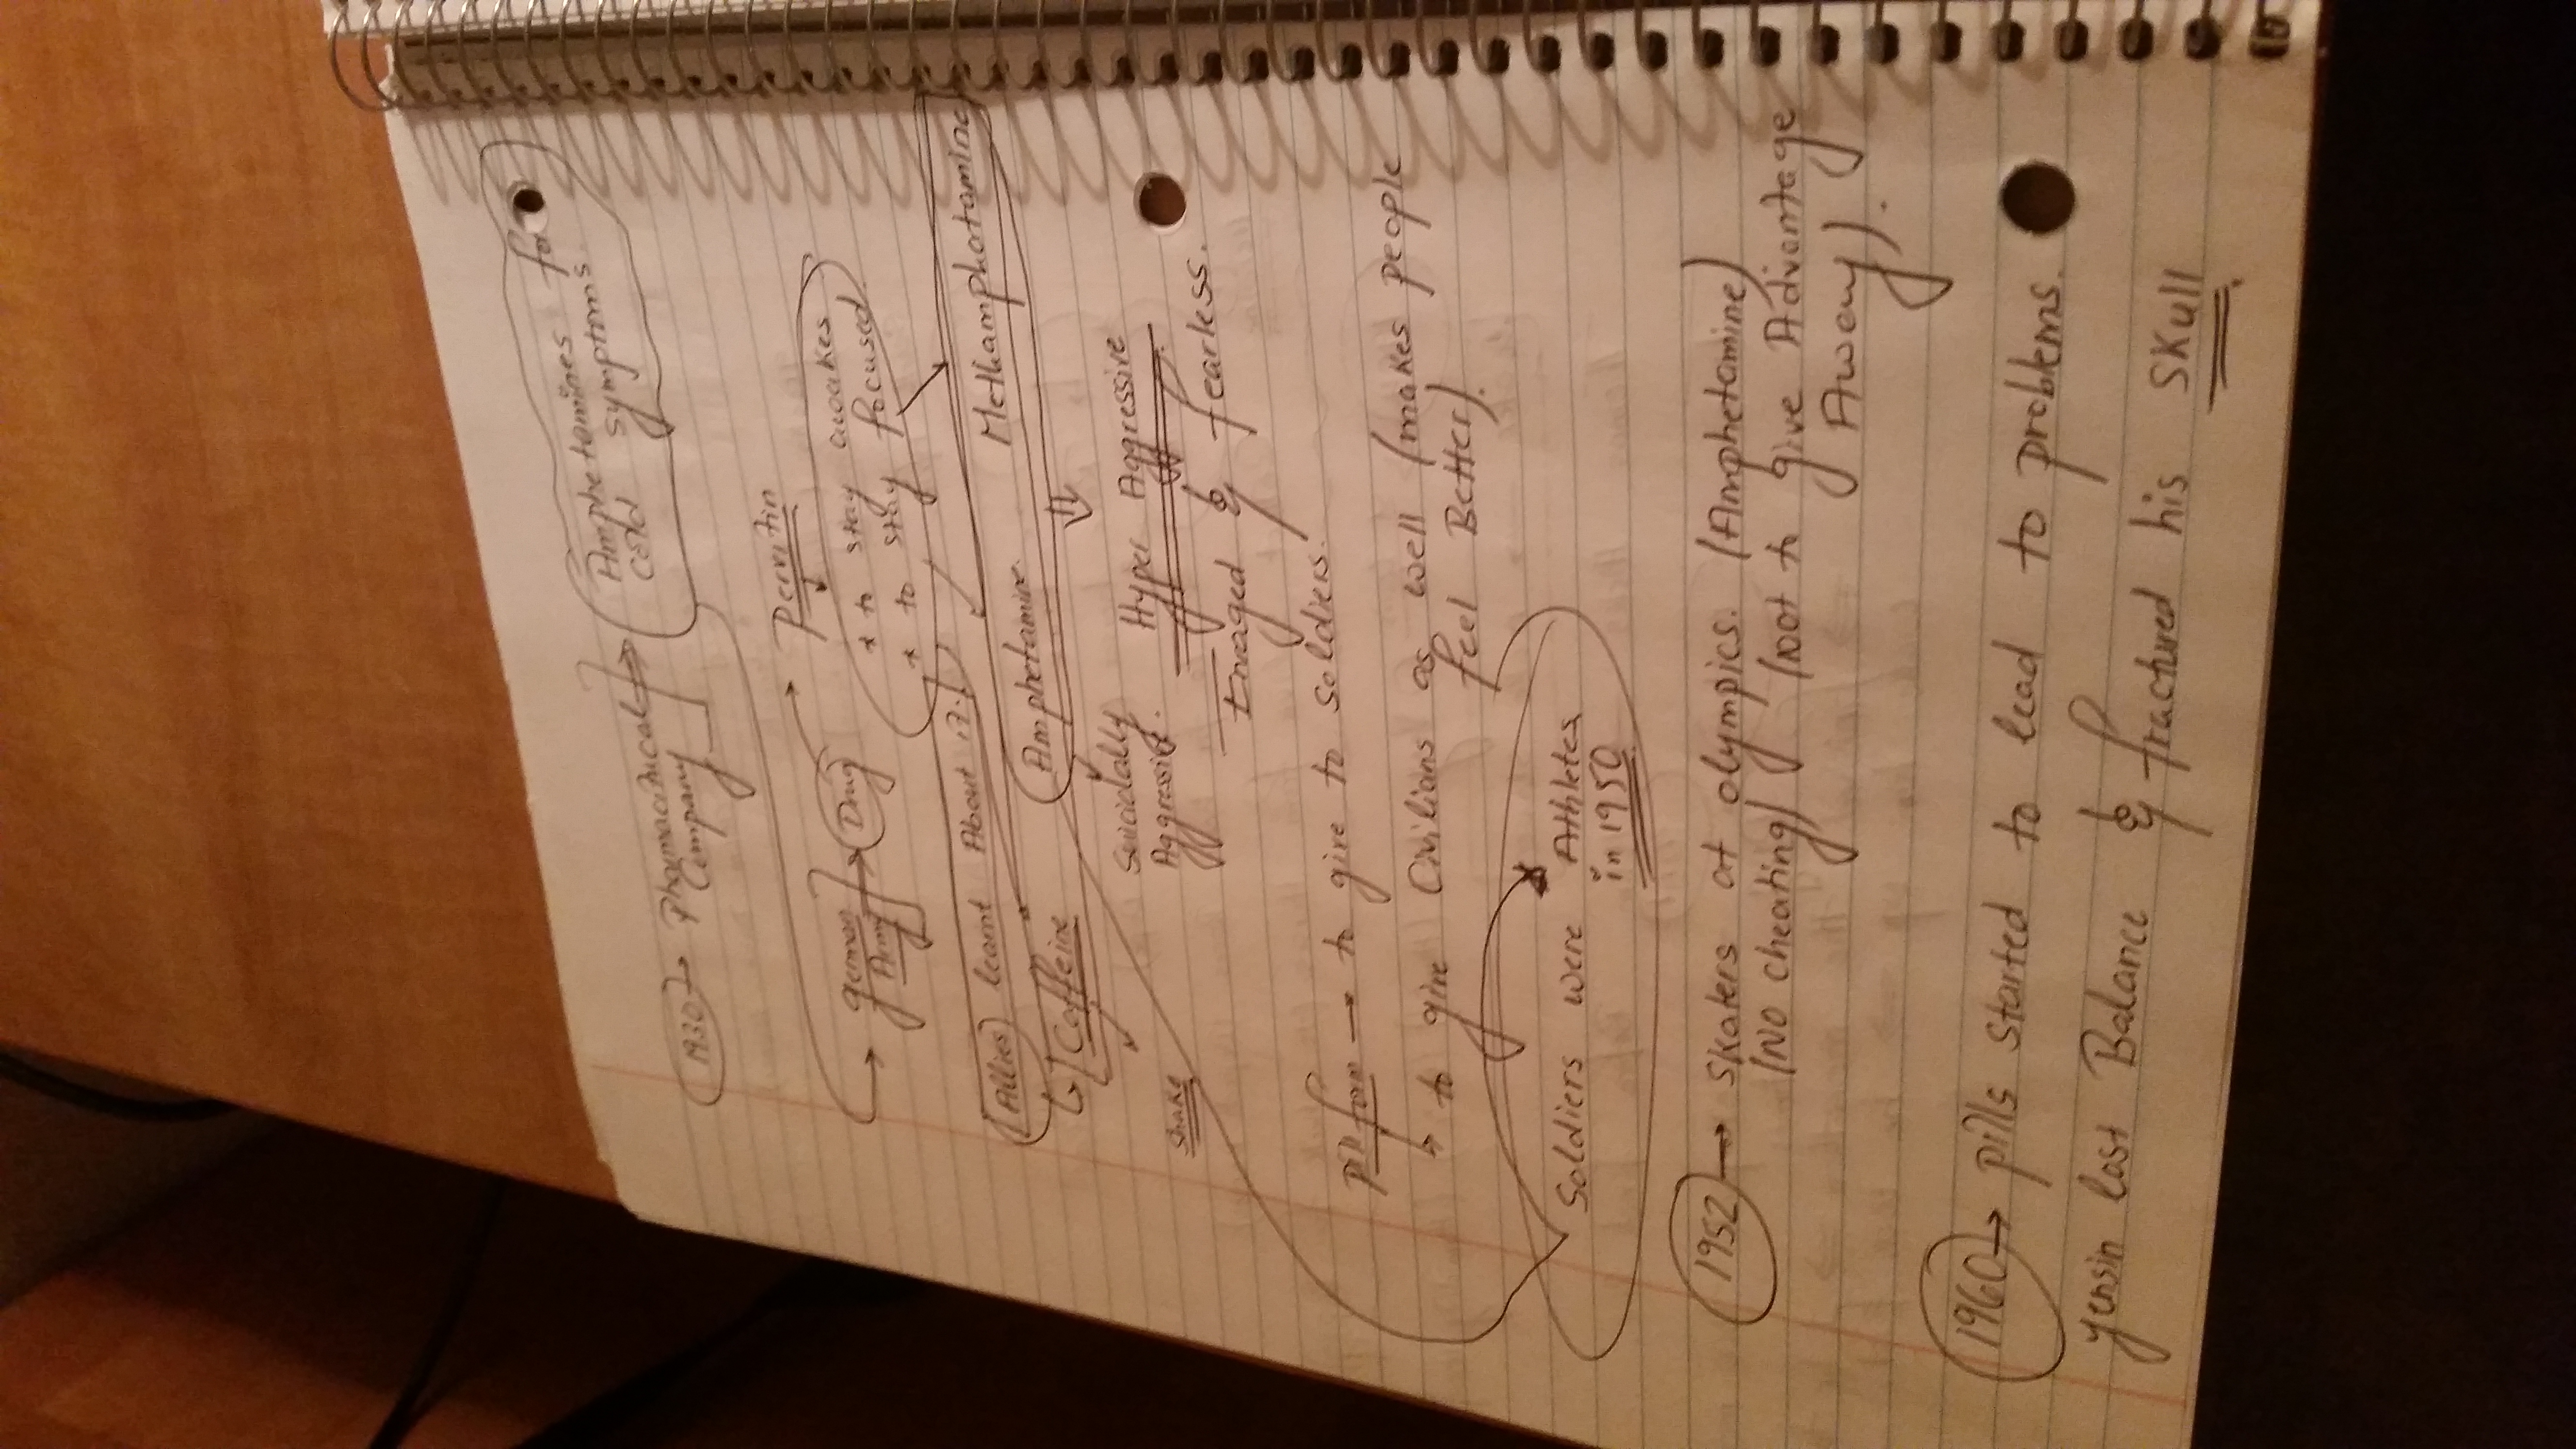 1930 → Phamacutical → Amphetamines for
Company cold symptoms
→ german → Drug → Pervitin
Army
* to stay awakes
* to stay focused
Allies learnt About it. Methamphatamine
↳ Caffeine Amphetamine
Suicidally Hyper Aggressive
Aggressive.
Shake Enraged & fearless.
Pill form → to give to soldiers.
↳ to give Civilians as well (makes people
feel Better).
Soldiers were Athletes
in 1950
1952 → skaters at olympics. (Amphetamine)
(NO cheating) (not to give Advantage
Away).
1960 → pills started to lead to problems.
yensin lost Balance & fractured his SKull